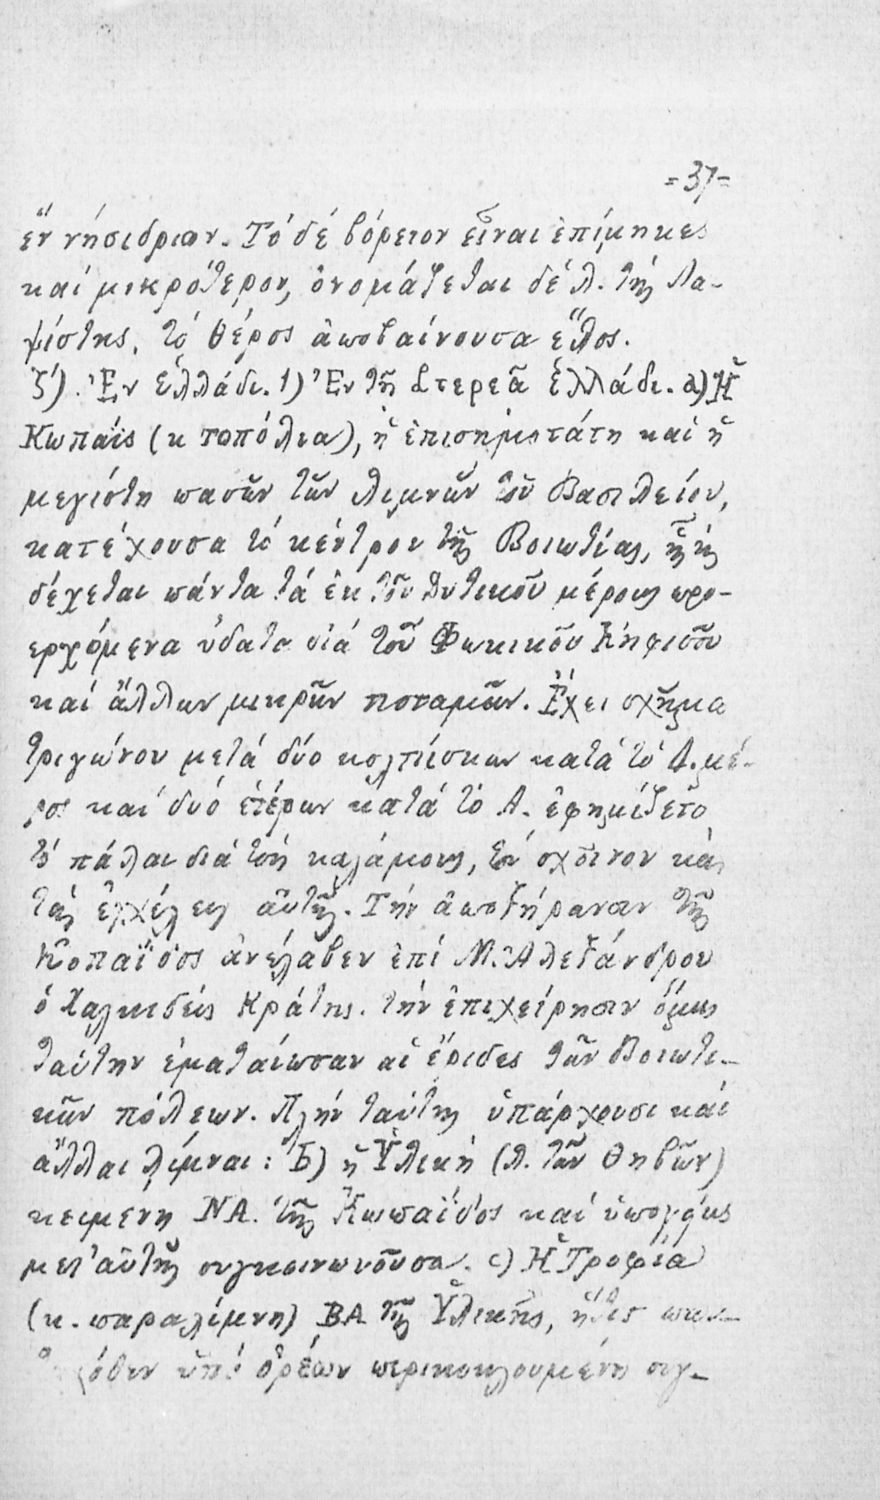 =37=
ἕν νήσιδριον. Τό δέ βόρειον εἶναι ἐπίμηκες
καί μικρότερον, ὀνομάζεται δέ λ. τῆς Λα-
ψίστης, τό θέρος ἀποβαίνουσα ἕλος.
ζ'). Ἐν Ἑλλάδι. 1) Ἐν τῇ Στερεᾷ Ἑλλάδι. a) Ἡ
Κωπαΐς (κ τοπόλια), ἡ ἐπισημοτάτη καί ἡ
μεγίστη πασῶν τῶν λιμνῶν τοῦ Βασιλείου,
κατέχουσα τό κέντρον τῆς Βοιωτίας, ἥτις
δέχεται πάντα τά ἐκ τοῦ δυτικοῦ μέρους προ-
ερχόμενα ὕδατα διά τοῦ Φωκικοῦ Κηφισσοῦ
καί ἄλλων μικρῶν ποταμῶν. Ἔχει σχῆμα
τριγώνου μετά δύο κολπίσκων κατά τό Δ. μέ-
ρος καί δυό ἑτέρων κατά τό Α. ἐφημίζετο
τό πάλαι διά τούς καλάμους, τόν σχοῖνον καί
τάς ἐγχέλεις αὐτῆς. Τήν ἀποξήρανσιν τῆς
Κοπαΐδος ἀνέλαβεν ἐπί Μ. Ἀλεξάνδρου
ὁ Χαλκιδεύς Κράτης. τήν ἐπιχείρησιν ὅμως
ταύτην ἐματαίωσαν αἱ ἔριδες τῶν Βοιωτι-
κῶν πόλεων. Πλήν ταύτης ὑπάρχουσι καί
ἄλλαι λίμναι: b) ἡ Ὑλική (λ. τῶν Θηβῶν)
κειμένη ΝΑ. τῆς Κωπαΐδος καί ὑπογείως
μετ' αὐτῆς συγκοινωνοῦσα. c) Ἡ Τροφία
(κ. παραλίμνη) ΒΑ τῆς Ὑλικῆς, ἥτις παν-
ὑπό ὀρέων περικυκλουμένη σχη-